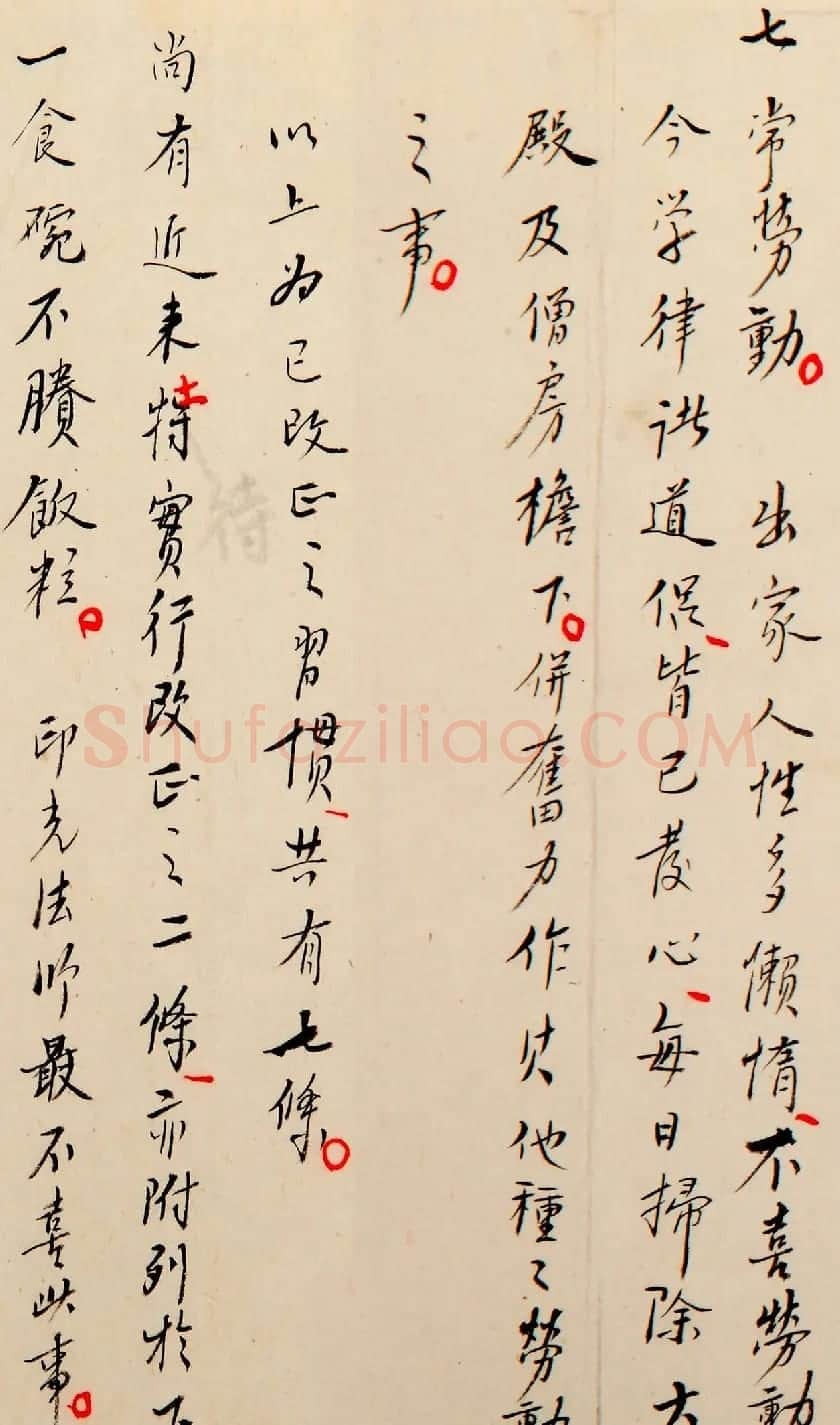 七 常勞動。 出家人性多懶惰、不喜勞動
今学律諸道侶、皆已發心、每日掃除大
殿及僧房檐下。併奮力作其他種々勞動
之事。
以上為已改正之習慣、共有七條。
尚有近来特實行改正之二條、亦附列於下
待
一食碗不賸飯粒。 印光法师最不喜此事。
Shufaziliao.COM